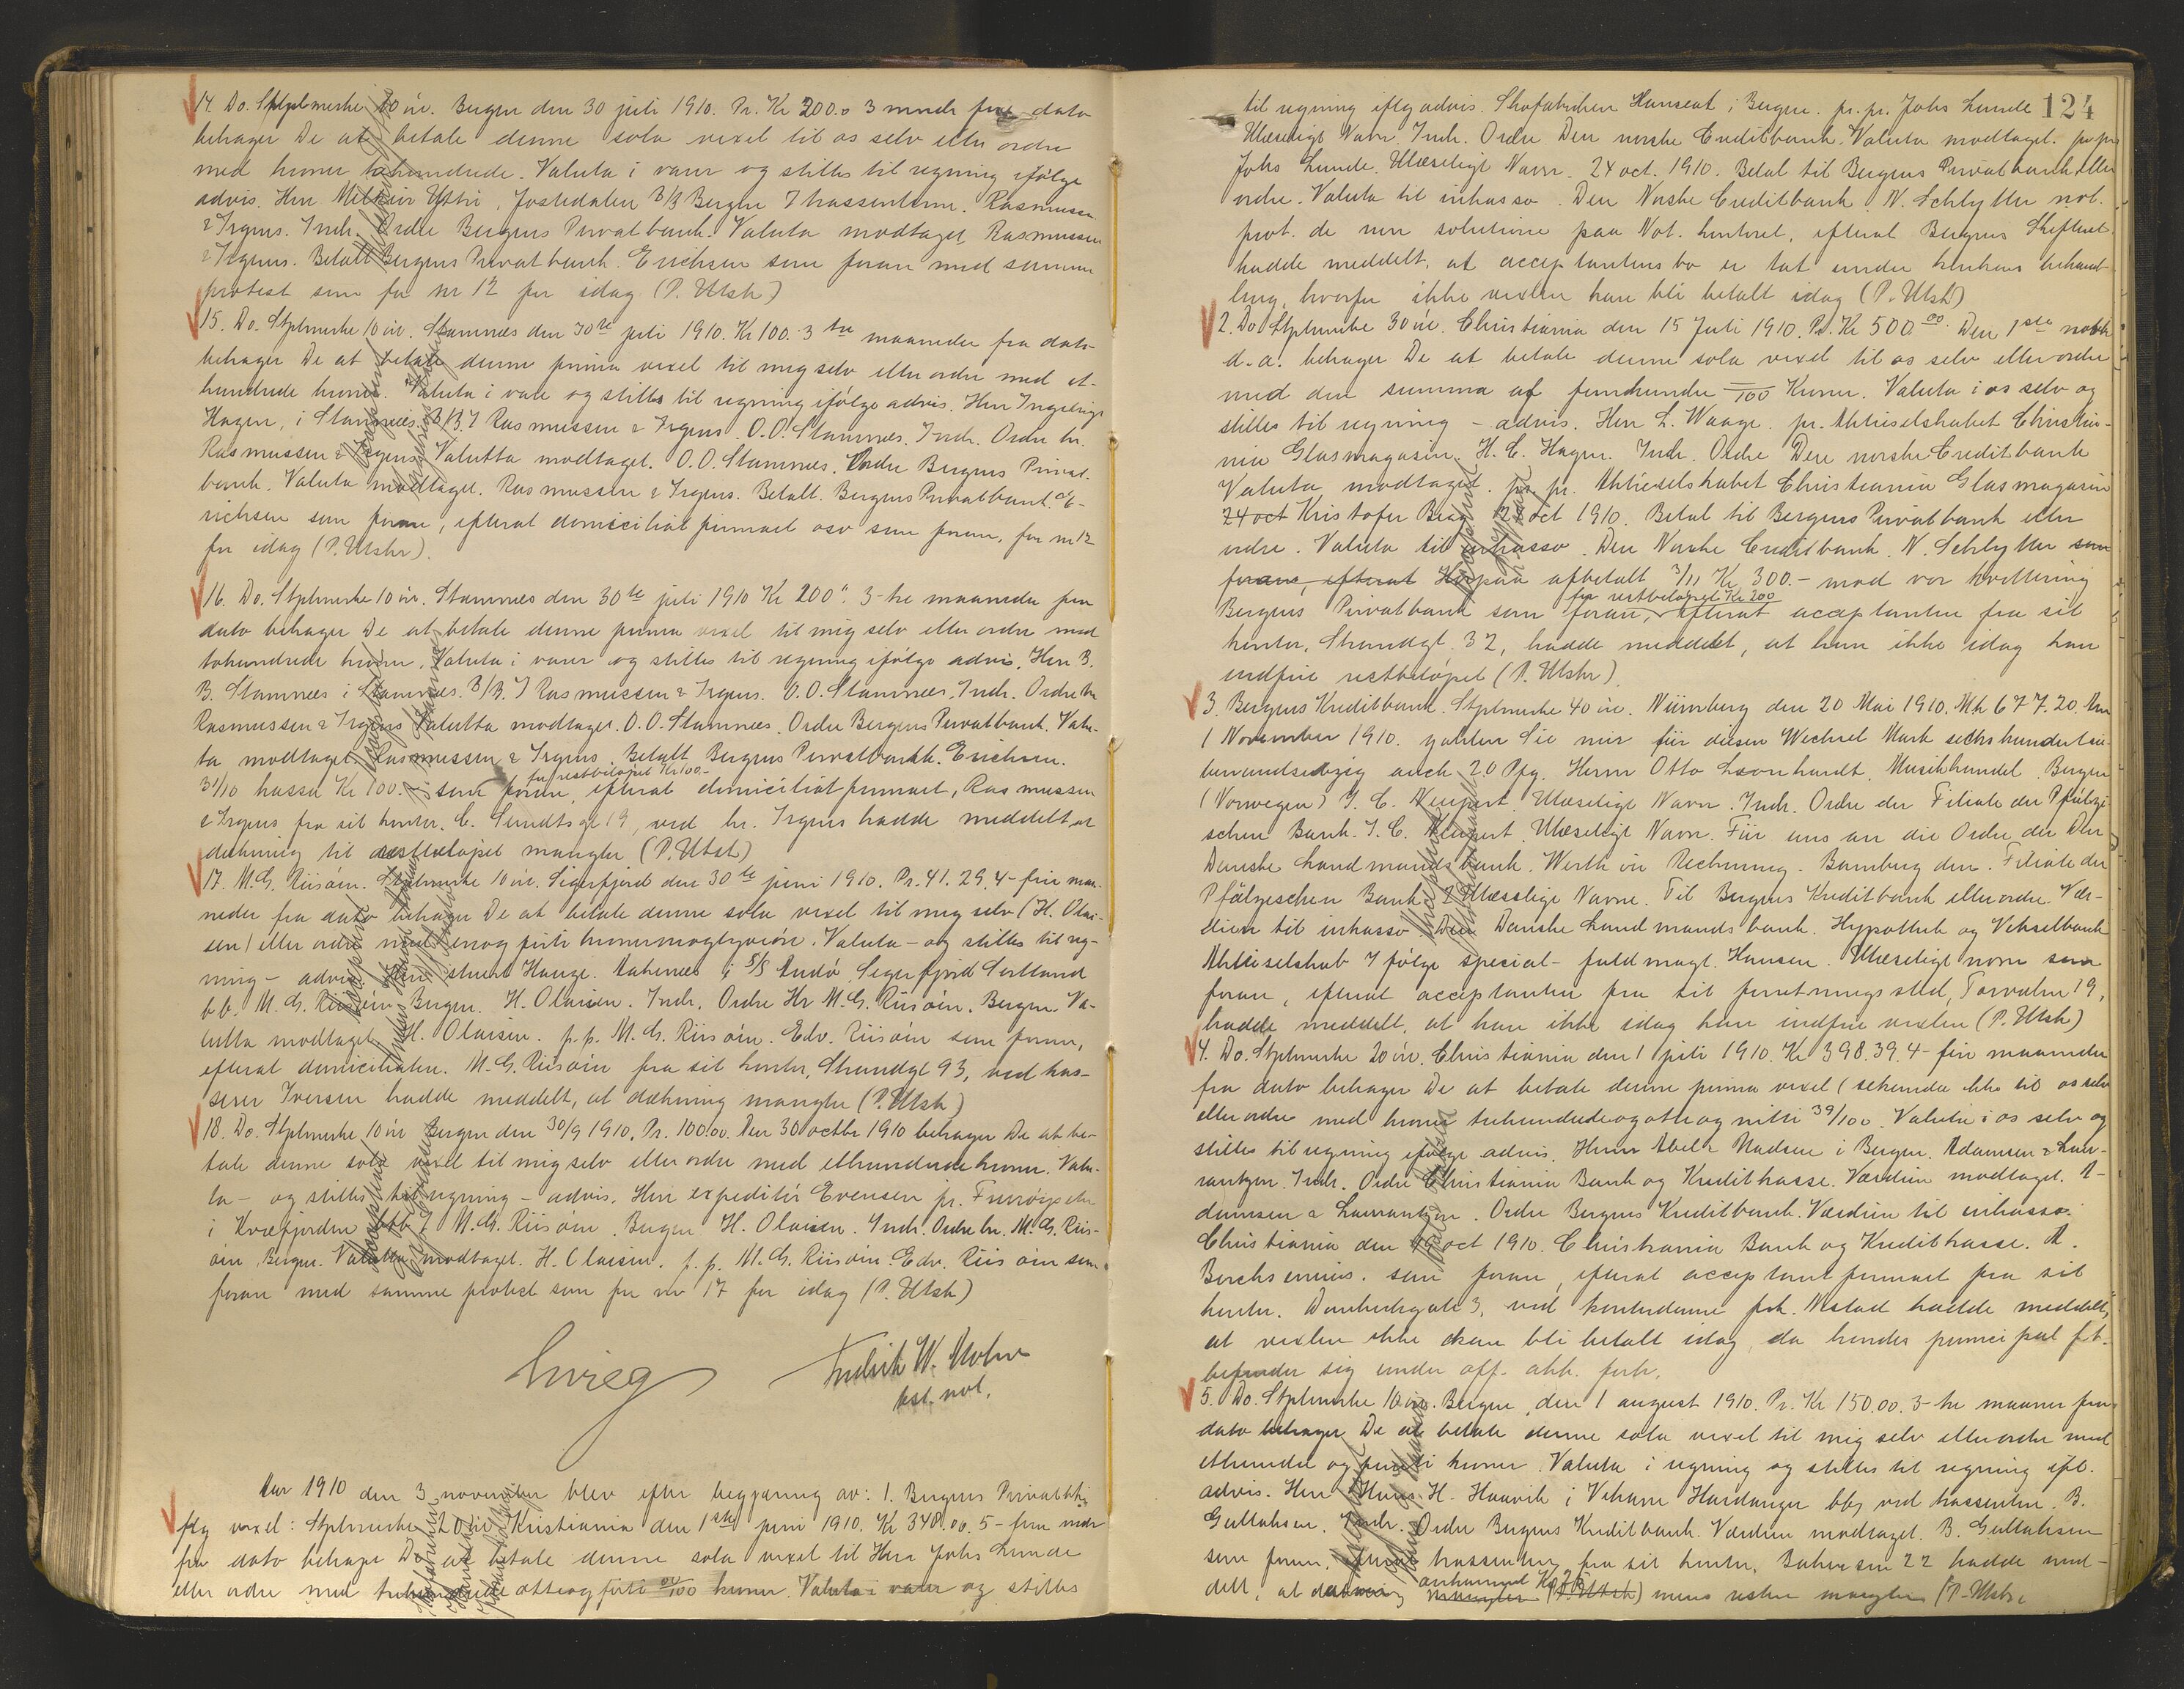 14. Do. Stplmerke 20 öre. Bergen den 30 juli 1910. Pr. Kr 200.0 3 mndr fra dato
behager De at betale denne sola vexel til os selv eller ordre
med kroner tohundrede. Valuta i varer og stilles til regning ifölge
advis. Herr Ythri, Jostedalen B/B Bergen Rasmussen
& Irgens. Indr. Ordre Bergens Privatbank. Valuta modtaget Rasmussen
& Irgens. Betalt Bergens Privatbank. Erichsen som foran med samme
protest som for nr 12 for idag (P. Utsk)
15. Do. Stplmerke 10 öre. Stamnes den 30te juli 1910. Kr 100. 3 tre maaneder fra dato
behager De at betale denne prima vexel til mig selv eller ordre med et-
hundrede kroner. Valuta i vare og stilles til regning ifölge advis. Herr
Hagen, i Stamnes. B/B. Rasmussen & Irgens. O.O. Stamnes. Indr. Ordre hr.
Rasmussen & Irgens Valutta modtaget. O.O. Stamnes. Ordre Bergens Privat-
bank. Valuta modtaget. Rasmussen & Irgens. Betalt. Bergens Privatbank. E-
richsen som foran, efterat domiciliatfirmaet osv som foran, for nr 12
for idag (P. Utskr).
16. Do. Stplmerke 10 öre. Stamnes den 30te juli 1910 Kr 200". 3-tre maaneder fra
dato behager De at betale denne prima vexel til mig selv eller ordre med
tohundrede kroner. Valuta i varer og stilles til regning ifölge advis. Herr B.
B. Stamnes i Stamnes. B/B. Rasmussen & Irgens. O.O. Stamnes. Indr. Ordre hr
Rasmussen & Irgens Valutta modtaget. O.O. Stamnes. Ordre Bergens Privatbank. Valu-
ta modtaget. Rasmussen & Irgens. Betalt Bergens Privatbank. Erichsen.
for restbelöpet Kr 100.-
31/10 kassa Kr 100. som foran, efterat domiciliatfirmaet, Rasmussen
& Irgens fra sit kontor, C. Sundtsgt 19, ved hr. Irgens hadde meddelt at
dækning til restbelöpet mangler (P. Utsk)
17. M.G. Riisöen. Stplmerke 10 öre. Sigerfjord den 30te juni 1910. Pr. 41.29. 4-fire maa-
neder fra dato behager De at betale denne sola vexel til mig selv (H. Olai-
sen) eller ordre med enogfirti kroner. Valuta - og stilles til reg-
ning - advis Herr Hauge. i S/S Andö, Sigerfjord Sortland
bb. M.G. Riisöen Bergen. H. Olaisen. Indr. Ordre Hr M.G. Riisöen. Bergen. Va-
lutta modtaget H. Olaisen. p.p. M.G. Riisöen. Edv. Riisöen som foran,
efterat domiciliaten. M.G. Riisöen fra sit kontor, Strandgt 93, ved kas-
serer Iversen hadde meddelt, at dækning mangler (P. Utsk)
18. Do. Stplmerke 10 öre Bergen den 30/9 1910. Pr. 100.00. Den 30 octbr 1910 behager De at be-
tale denne sola vexel til mig selv eller ordre med ethundrede kroner. Valu-
ta - og stilles til regning - advis. Herr expeditör Evensen pr.
i Kvæfjorden M.G. Riisöen. Bergen H. Olaisen. Indr. Ordre hr. M.G. Riis-
öen, Bergen. Valutta modtaget. H. Olaisen. p.p. M.G. Riisöen. Edv. Riisöen som
foran med samme protest som for nr 17 for idag (P. Utsk)
Fredrik W.
kst. not.
Aar 1910 den 3 november blev efter begjæring av: 1. Bergens Privatbk
flg vexel: Stplmerke 20 öre Kristiania den 1ste juni 1910. Kr 348.00. 5- fem mdr
fra dato behage De at betale denne sola vexel til Herr Johs Lunde
eller ordre med trehundrede otteogfirti 00/100 kroner. Valuta i varer og stilles
124
til regning iflg advis. Skofabriken Hanseat i Bergen. pr. pr. Johs Lunde
Ulæseligt Navn. Indr. Ordre Den norske Creditbank. Valuta modtaget. pr pr
Johs Lunde. Ulæseligt Navn. 24 oct. 1910. Betal til Bergens Privatbank eller
ordre. Valuta til inkasso. Den Norske Creditbank. N. Schlytter not.
prot. de non solutione paa Not. kontoret, efterat Bergens Skifteret
hadde meddelt, at acceptantens bo er tat under konkurs behand-
ling, hvorfor ikke vexlen kan bli betalt idag (P. Utsk)
2. Do. Stplmerke 30 öre. Christiania den 15 Juli 1910. Pr. Kr 500.00. Den 1ste novbr
d.a. behager De at betale denne sola vexel til os selv eller ordre
med den summa af femhundre /100 Kroner. Valuta i os selv og
stilles til regning - advis. Herr L. Waage. pr. Aktieselskabet Christia-
nia Glasmagasin. H.C. Hagen. Indr. Ordre Den norske Creditbank
Valuta modtaget. pr. pr. Aktieselskabet Christiania Glasmagasin
24 oct Kristofer 24 oct 1910. Betal til Bergens Privatbank eller
ordre. Valuta til inkasso. Den Norske Creditbank N. Schlytter som
foran, efterat Herpaa afbetalt 3/11 Kr 300.- mod vor kvittering
for restbelöpet Kr 200
Bergens Privatbank som foran, efterat acceptanten fra sit
kontor, Strandgt. 32, hadde meddelt, at han ikke idag kan
indfrie restbelöpet (P. Utskr)
3. Bergens Kreditbank. Stplmerke 40 öre. Nürnberg den 20 Mai 1910. Mk 677.20. Am
1 November 1910. zahlen Sie mir für diesen Wechsel Mark sechshundertsie-
benundsiebzig auch 20 Pfg. Herrn Otto Leonhardt. Musikhandel. Bergen
(Norwegen) J.C. Neupert. Ulæseligt Navn. Indr. Ordre der Filiale der Pfälzi-
schen Bank. J.C. Neupert. Ulæseligt Navn. Für uns an die Ordre der Den
Danske Landmandsbank. Werth in Rechnung. Bamberg den. Filiale der
Pfälzischen Bank 2 Ulæselige Navne. Til Bergens Kreditbank eller ordre. Vær-
dien til inkasso. Den Danske Landmandsbank. Hypothek og Vekselbank
Aktieselskab Ifölge special-fuldmagt. Hansen. Ulæseligt navn som
foran, efterat acceptanten fra sit forretningssted, Torvalm 19,
hadde meddelt, at han ikke idag kan indfrie vexlen (P. Utsk)
4. Do. Stplmerke 20 öre. Christiania den 1 juli 1910. Kr 398.39. 4-fire maaneder
fra dato behager De at betale denne prima vexel (sekunda ikke til os selv
eller ordre med kroner trehundredeogotteognitti 39/100. Valuta i os selv og
stilles til regning ifölge advis. Herrer Abel & Madsen i Bergen. Adamsen & Lau-
rantzon. Indr. Ordre Christiania Bank og Kreditkasse. Værdien modtaget. A-
damsen & Laurantzon. Ordre Bergens Kreditbank. Værdien til inkasso.
Christiania den oct 1910. Christiania Bank og Kreditkasse. A.
som foran, efterat acceptantfirmaet fra sit
kontor. 3, ved kontordame frk. hadde meddelt,
at vexlen ikke kan bli betalt idag, da hendes principal f.t.
befinder sig under off. akk. forh.
5. Do. Stplmerke 10 öre. Bergen, den 1 august 1910. Pr. Kr 150.00. 3-tre maaner fra
dato behager De at betale denne sola vexel til mig selv eller ordre med
ethundre og femti kroner. Valuta i regning og stilles til regning ifl.
advis. Herr Hans H. Haavik i Vikane Hardanger bb, ved trassenten. B.
Gullaksen. Indr. Ordre Bergens Kreditbank. Værdien modtaget. B. Gullaksen
som foran, efterat trassenten, fra sit kontor, 22 hadde med-
delt, at dækning mangler (P. Utsk) mens resten mangler (P. Utskr